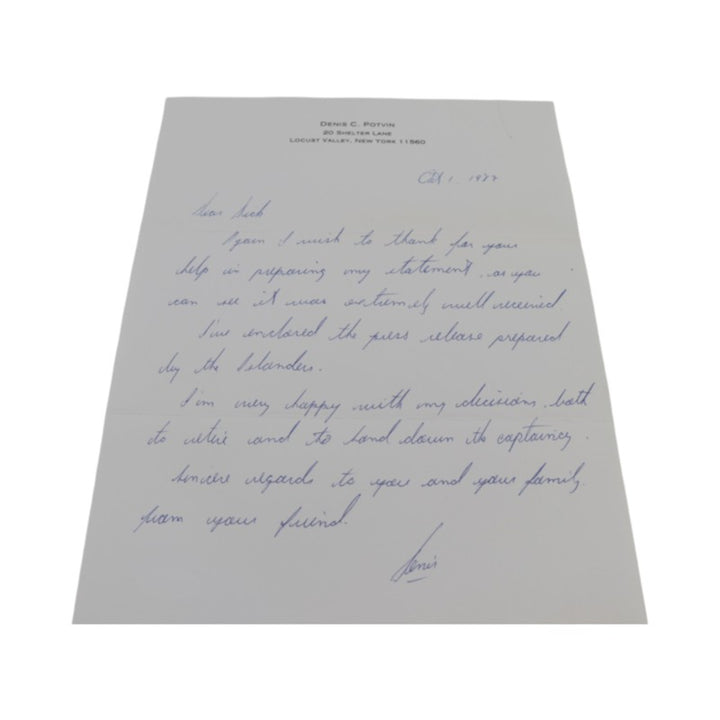 DENIS C. POTVIN
20 SHELTER LANE
LOCUST VALLEY, NEW YORK 11560
Oct 1,
Dear Dick
Again I wish to thank for your
help in preparing my statement, as you
can see it was extremely well received.
I've enclosed the press release prepared
by the Islanders.
I'm very happy with my decisions, both
to retire and to hand down the captaincy.
Sincere regards to you and your family.
from your friend.
Denis